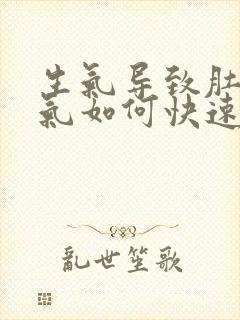 生氣导致肚
氣如何快速
亂世笙歌